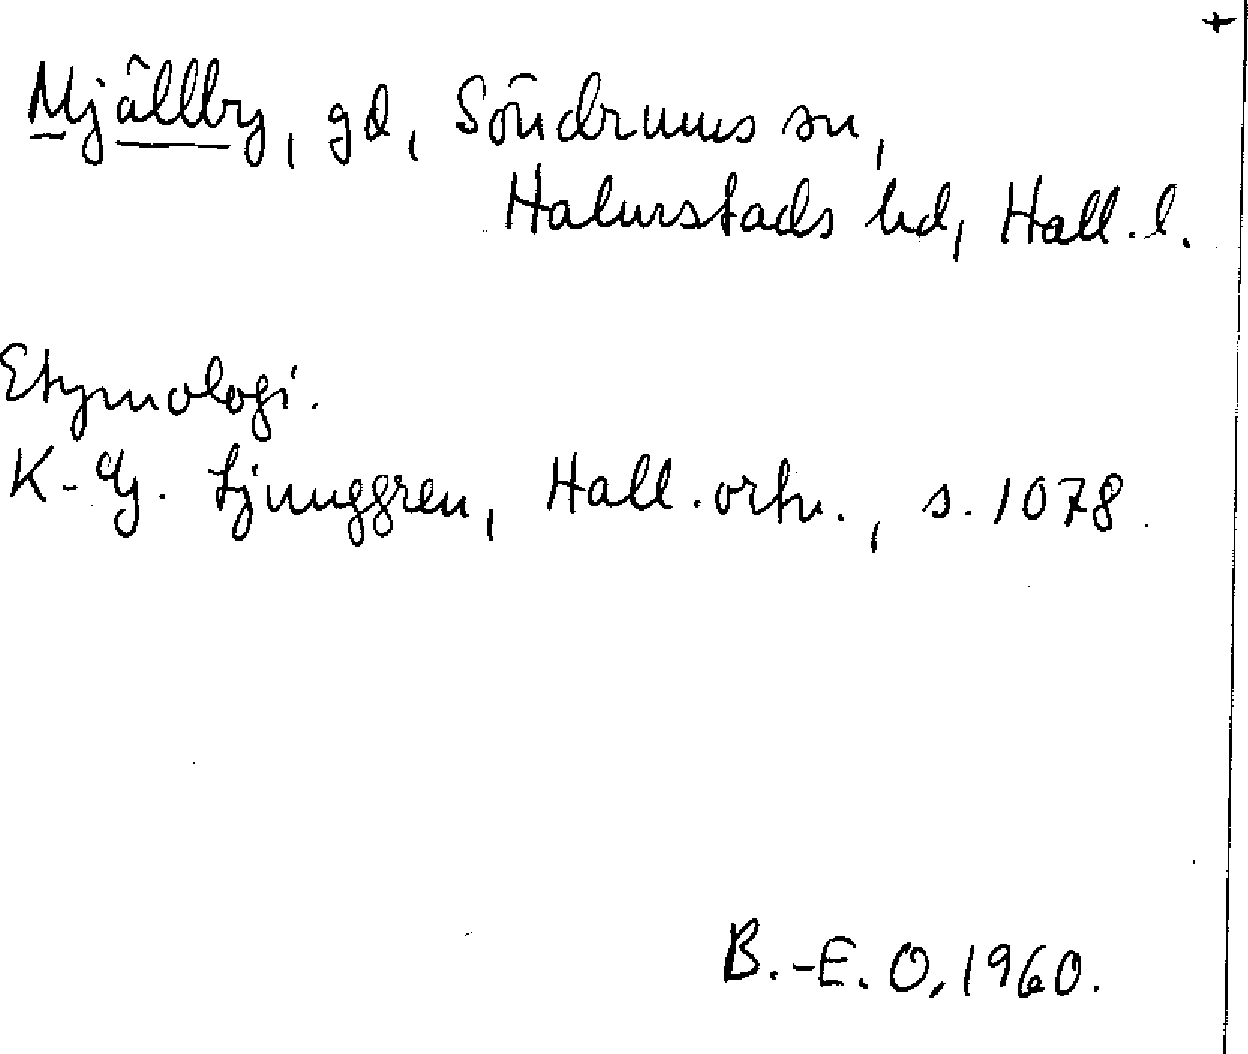 +
Mjällby, gd, Söndrums sn,
Halmstads hd, Hall. l.
Etymologi.
K-G. Ljunggren, Hall. ortn., s. 1078.
B.-E. O, 1960.